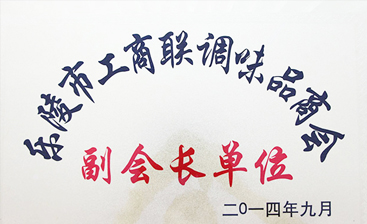 乐陵市工商联调味品商会
副会长单位
二0一四年九月